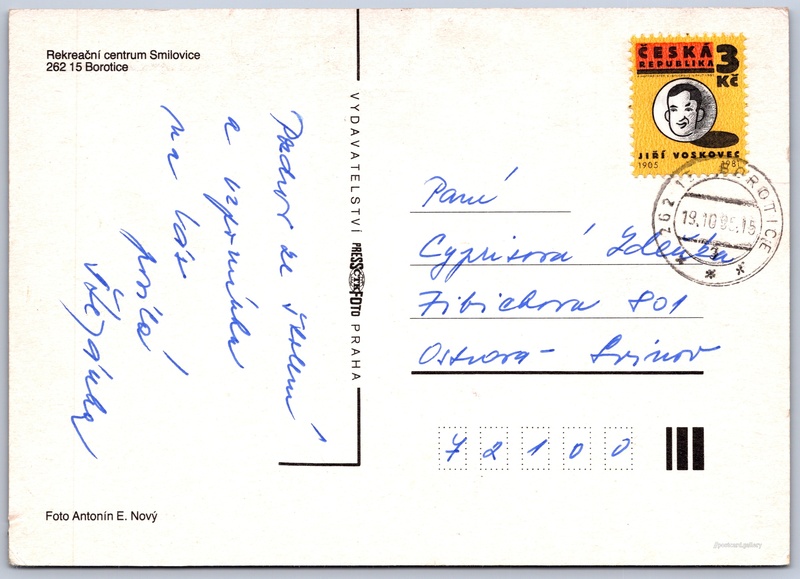 Rekreační centrum Smilovice
262 15 Borotice
Pozdrav ze školení
a vzpomínku
na Vás
posílá
VYDAVATELSTVÍ PRESSFOTO PRAHA
ČESKÁ
REPUBLIKA
3
Kč
JIŘÍ VOSKOVEC
1905 1981
262 15 BOROTICE
19.10.95.15
Paní
Cyprisová Zdeňka
Fibichova 801
Ostrava - Svinov
72100
Foto Antonín E. Nový
//postcard.gallery